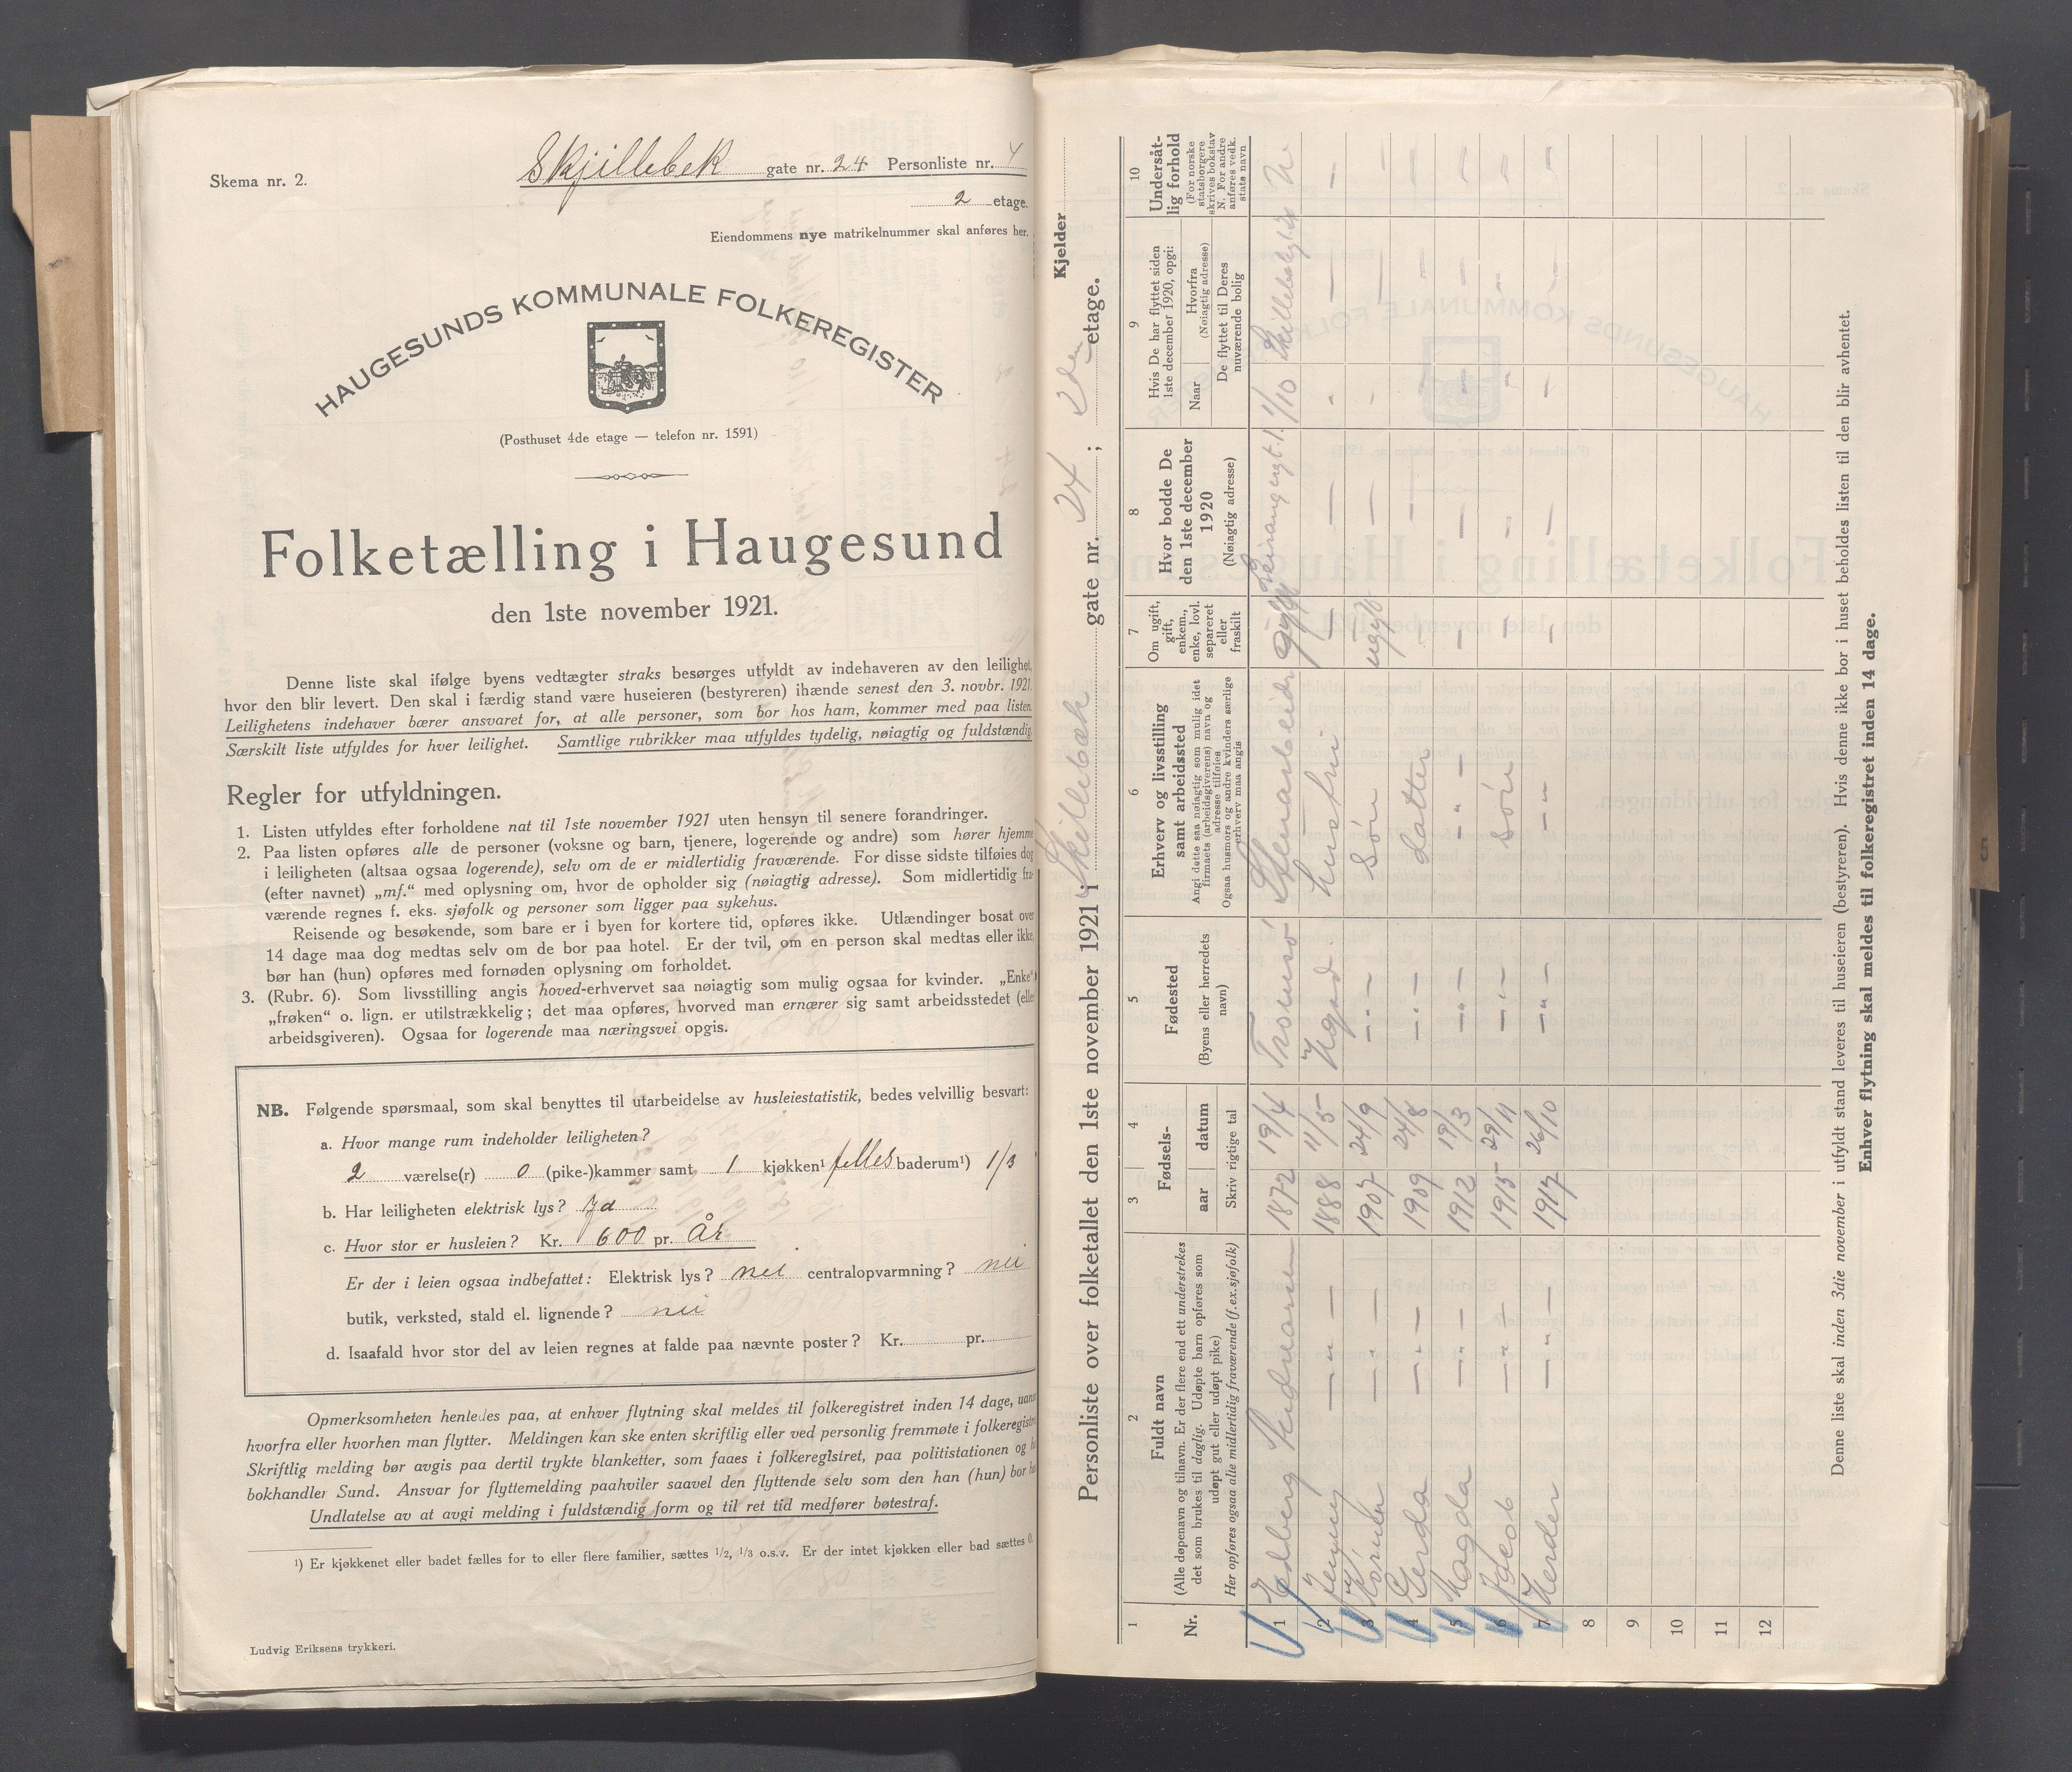 Skema nr. 2.
Skjillebek gate nr. 24 Personliste nr. 4
2 etage.
Eiendommens nye matrikelnummer skal anføres her.
HAUGESUNDS KOMMUNALE FOLKEREGISTER
(Posthuset 4de etage — telefon nr. 1591)
Folketælling i Haugesund
den 1ste november 1921.
Denne liste skal ifølge byens vedtægter straks besørges utfyldt av indehaveren av den leilighet,
hvor den blir levert. Den skal i færdig stand være huseieren (bestyreren) ihænde senest den 3. novbr. 1921.
Leilighetens indehaver bærer ansvaret for, at alle personer, som bor hos ham, kommer med paa listen.
Særskilt liste utfyldes for hver leilighet. Samtlige rubrikker maa utfyldes tydelig, nøiagtig og fuldstændig.
Regler for utfyldningen.
1. Listen utfyldes efter forholdene nat til 1ste november 1921 uten hensyn til senere forandringer.
2. Paa listen opføres alle de personer (voksne og barn, tjenere, logerende og andre) som hører hjemme
i leiligheten (altsaa ogsaa logerende), selv om de er midlertidig fraværende. For disse sidste tilføies dog
(efter navnet) „mf.“ med oplysning om, hvor de opholder sig (nøiagtig adresse). Som midlertidig fra-
værende regnes f. eks. sjøfolk og personer som ligger paa sykehus.
Reisende og besøkende, som bare er i byen for kortere tid, opføres ikke. Utlændinger bosat over
14 dage maa dog medtas selv om de bor paa hotel. Er der tvil, om en person skal medtas eller ikke,
bør han (hun) opføres med fornøden oplysning om forholdet.
3. (Rubr. 6). Som livsstilling angis hoved-erhvervet saa nøiagtig som mulig ogsaa for kvinder. „Enke“,
„frøken“ o. lign. er utilstrækkelig; det maa opføres, hvorved man ernærer sig samt arbeidsstedet (eller
arbeidsgiveren). Ogsaa for logerende maa næringsvei opgis.
NB. Følgende spørsmaal, som skal benyttes til utarbeidelse av husleiestatistik, bedes velvillig besvart:
a. Hvor mange rum indeholder leiligheten?
2 værelse(r) 0 (pike-)kammer samt 1 kjøkken¹ felles baderum¹) 1/3
b. Har leiligheten elektrisk lys? Ja
c. Hvor stor er husleien? Kr. 600 pr. År
Er der i leien ogsaa indbefattet: Elektrisk lys? nei centralopvarmning? nei
butik, verksted, stald el. lignende? nei
d. Isaafald hvor stor del av leien regnes at falde paa nævnte poster? Kr. pr.
Opmerksomheten henledes paa, at enhver flytning skal meldes til folkeregistret inden 14 dage, uanset
hvorfra eller hvorhen man flytter. Meldingen kan ske enten skriftlig eller ved personlig fremmøte i folkeregistret
Skriftlig melding bør avgis paa dertil trykte blanketter, som faaes i folkeregistret, paa politistationen og
bokhandler Sund. Ansvar for flyttemelding paahviler saavel den flyttende selv som den han (hun) bor
Undlatelse av at avgi melding i fuldstændig form og til ret tid medfører bøtestraf.
¹) Er kjøkkenet eller badet fælles for to eller flere familier, sættes 1/2, 1/3 o.s.v. Er der intet kjøkken eller bad sættes 0.
Ludvig Eriksens trykkeri.
Kjelder
Personliste over folketallet den 1ste november 1921 i Skillebæk gate nr. 24; 2den etage.
1 2 3 4 5 6 7 8 9 10
Nr.
Fuldt navn
(Alle døpenavn og tilnavn. Er der flere end ett understrekes
det som brukes til daglig. Udøpte barn opføres som
udøpt gut eller udøpt pike)
Her opføres ogsaa alle midlertidig fraværende (f.ex.sjøfolk)
Fødsels-
aar datum
Skriv rigtige tal
Fødested
(Byens eller herredets
navn)
Erhverv og livsstilling
samt arbeidssted
Angi dette saa nøiagtig som mulig idet
firmaets (arbeidsgiverens) navn og
adresse tilføies
Ogsaa husmors og andre kvinders særlige
erhverv maa angis
Om ugift,
gift,
enkem.,
enke, lovl.
separeret
eller
fraskilt
Hvor bodde De
den 1ste december
1920
(Nøiagtig adresse)
Hvis De har flyttet siden
1ste december 1920, opgi:
Naar
Hvorfra
(Nøiagtig adresse)
De flyttet til Deres
nuværende bolig
Undersåt-
lig forhold
(For norske
statsborgere
skrives bokstav
N. For andre
anføres vedk.
stats navn
1 Edberg Andreasen 1872 19/4 Tromsø gift 1/10 N
2 Jenny —„— 1888 11/5 Hgsd. husfru — — — — —
3 —„— 1907 24/9 —„— Søn ugift — — — —
4 Gerda —„— 1909 24/8 —„— datter — — — — —
5 Magda —„— 1912 19/3 —„— —„— — — — — —
6 Jacob —„— 1915 29/11 —„— Søn — — — — —
7 Herder —„— 1917 26/10 —„— —„— — — — — —
8
9
10
11
12
Denne liste skal inden 3die november i utfyldt stand leveres til huseieren (bestyreren). Hvis denne ikke bor i huset beholdes listen til den blir avhentet.
Enhver flytning skal meldes til folkeregistret inden 14 dage.